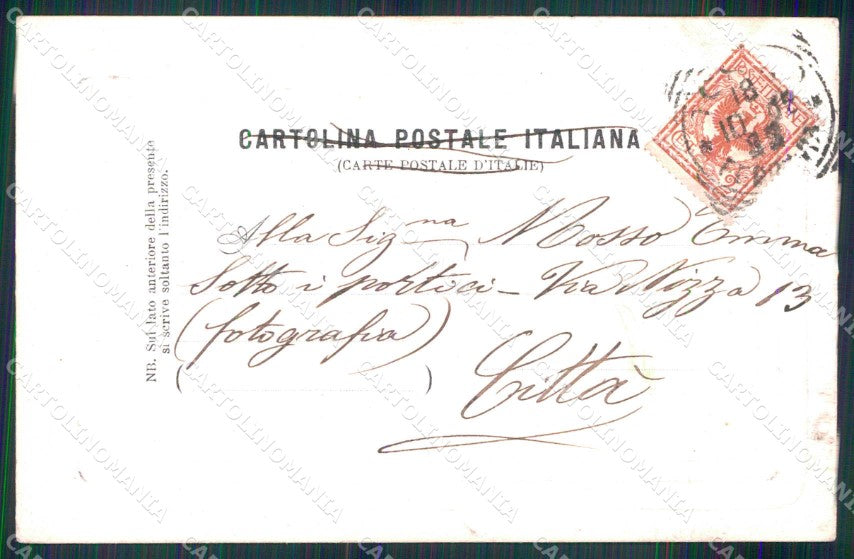 CARTOLINA POSTALE ITALIANA
(CARTE POSTALE D'ITALIE)
Alla Sigⁿᵃ Mosso Emma
Sotto i portici - Via Nizza 13
(fotografia)
Città
NB. Sul lato anteriore della presente
si scrive soltanto l'indirizzo.
CARTOLINOMANIA